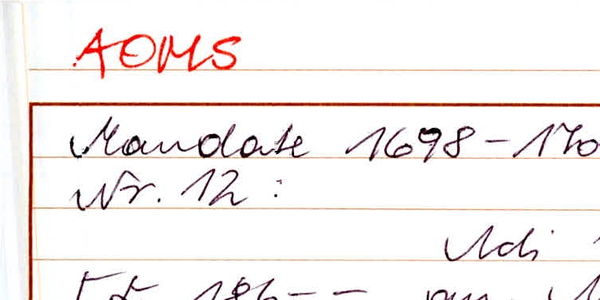 AOMS
Mandate 1698-170
Nr. 12:
Adi